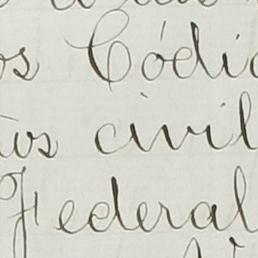 os Códi
civil
Federal